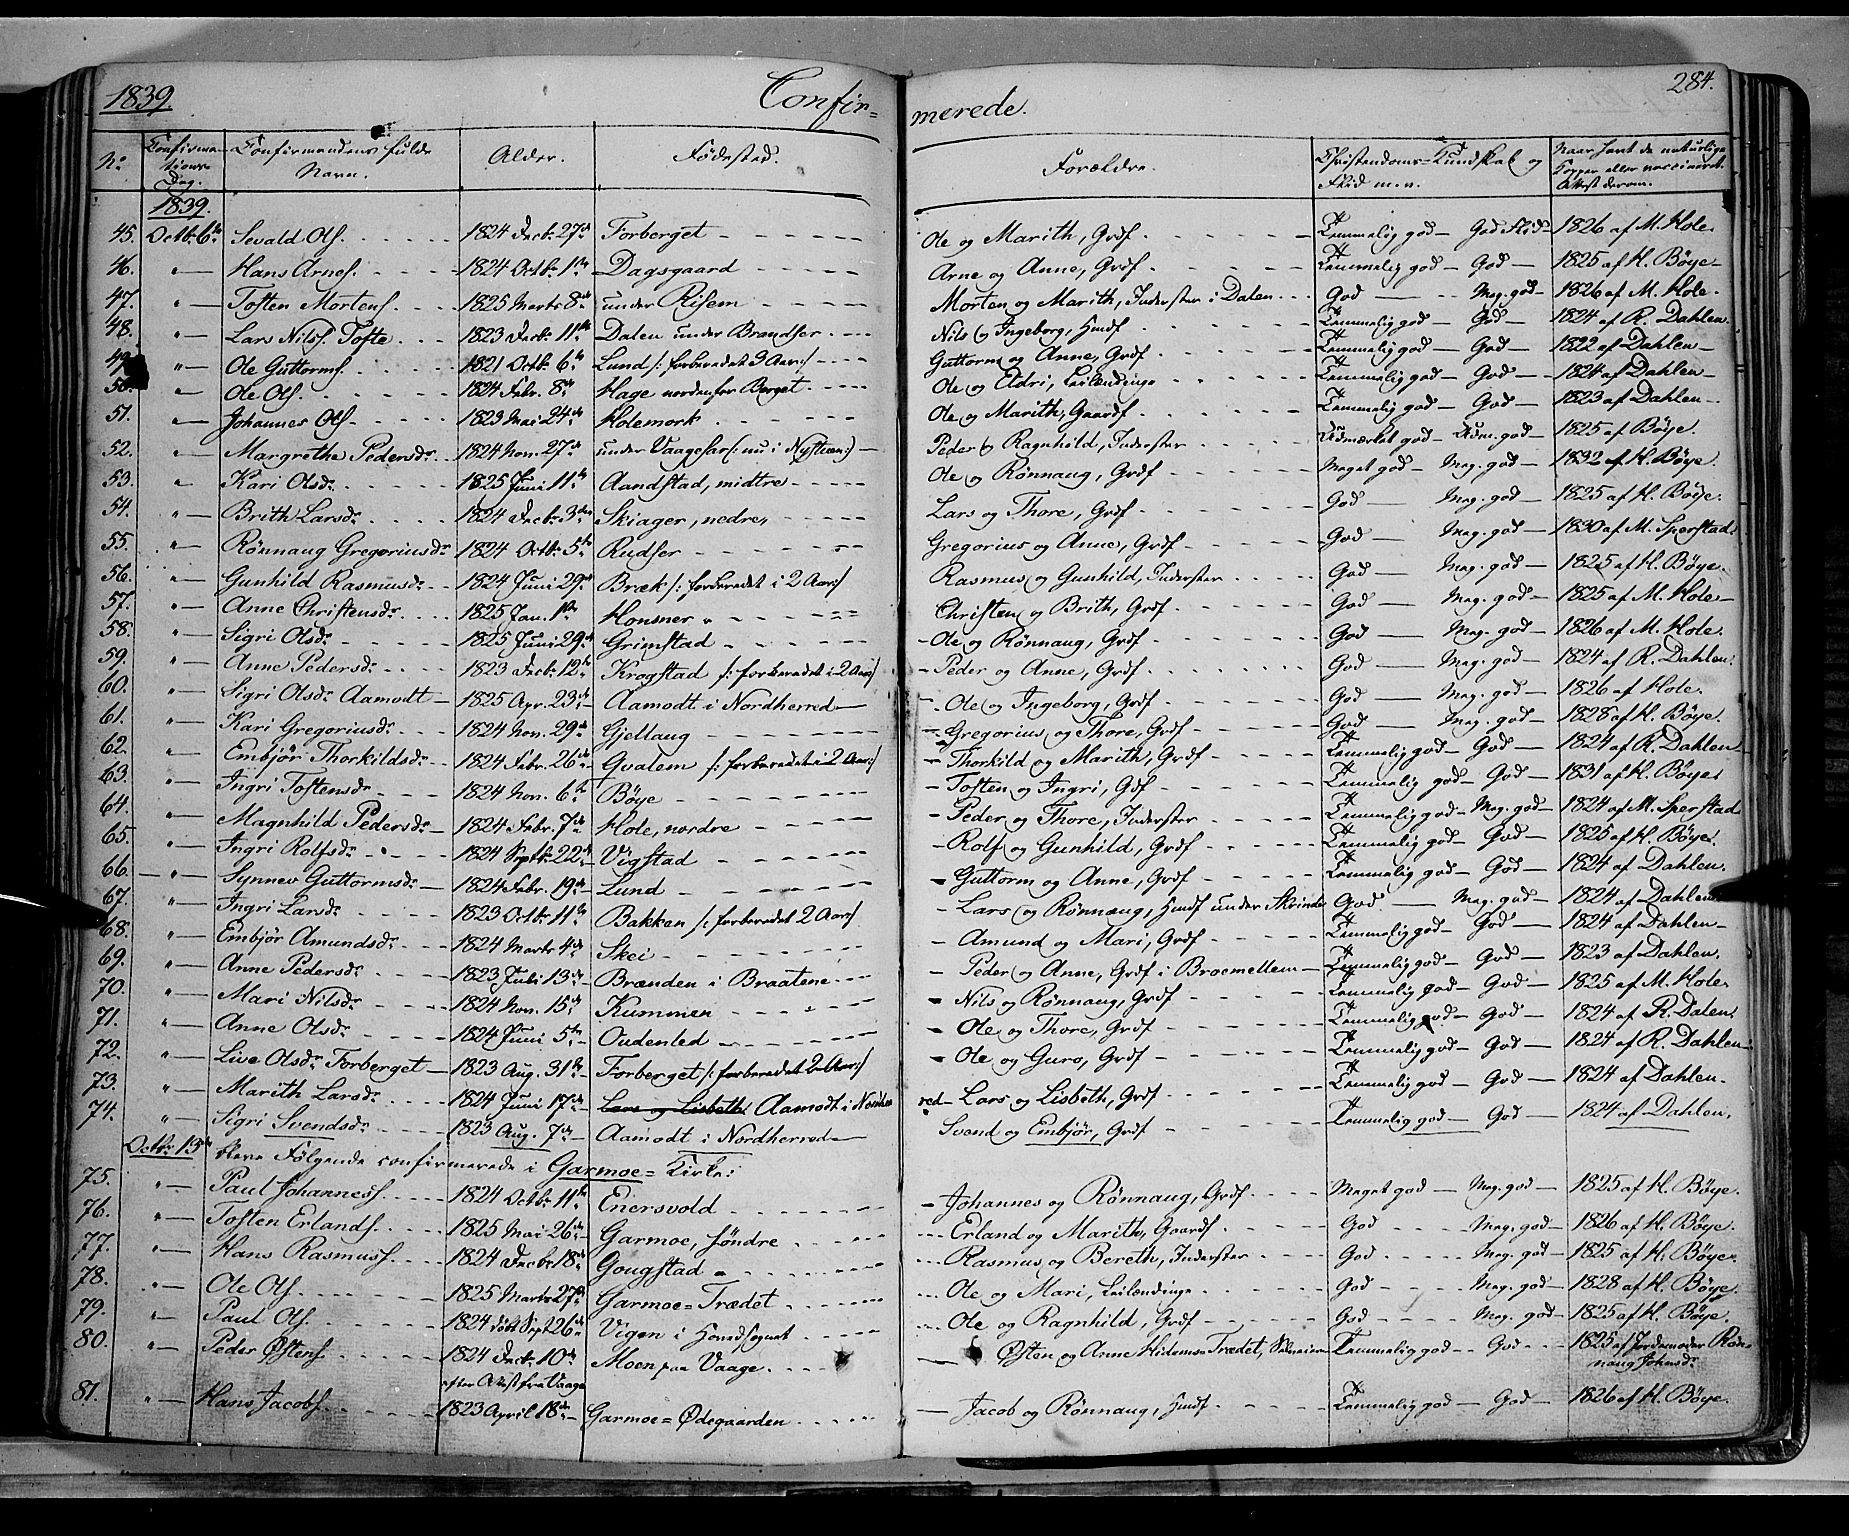 1839. Confir= merede. 284.
No. Confirmations Dag. Confirmandens fulde Navn. Alder. Fødested. Forældre. Christendoms=Kundskab og Flid m.v. Naar havt de naturlige Kopper eller vaccineret. Attest derom.
1839.
45. Octb. 6te Sevald Ols. 1824 Decb. 27de Forberget Ole og Marith, Grdf. Temmelig god — God Flid 1826 af M. Hole.
46. " Hans Arnes. 1824 Octb. 1ste Dagsgaard Arne og Anne, Grdf. Temmelig god — God — 1825 af H. Bøye
47. " Tosten Mortens. 1825 Marts 8de under Risem Morten og Marith, Inderster i Dalen God — Meg. god — 1826 af M. Hole.
48. " Lars Nils. Tofte 1823 Decb. 11te Dalen under Brandser Nils og Ingeborg, Hmdf. Temmelig god — God — 1824 af R. Dahlen.
49. " Ole Guttorms. 1821 Octb. 6te Lund /: forberedet 3 Aar :/ Guttorm og Anne, Grdf. Temmelig god — God — 1822 af Dahlen —
50. " Ole Ols. 1824 Febr. 8de Hage nordenfor Berget Ole og Eldri, Leilændinge Temmelig god — God — 1824 af Dahlen —
51. " Johannes Ols. 1823 Mai 24de Holemork Ole og Marith, Gaardf. Temmelig god — God — 1823 af Dahlen —
52. " Margrethe Pedersdr. 1824 Nov. 27de under Vaagesar (: nu i Nystuen :) Peder og Ragnhild, Inderster Udmærket god — Udm. god — 1825 af Bøye.
53. " Kari Olsdr. 1825 Juni 11te Aandstad, midtre Ole og Rønnaug, Grdf. Meget god — Meg. god — 1832 af H. Bøye.
54. " Brith Larsdr. 1824 Decb. 3die Skiager, nedre, Lars og Thore, Grdf. God Meg. god — 1825 af H. Bøye.
55. " Rønnaug Gregoriusdr. 1824 Octb. 5te Rudser Gregorius og Anne, Grdf. God — Meg. god — 1830 af M. Sperstad.
56. " Gunhild Rasmusdr. 1824 Juni 29de Bræk /: forberedet i 2 Aar :/ Rasmus og Gunhild, Inderster God — Meg. god — 1825 af H. Bøye.
57. " Anne Christensdr. 1825 Jan. 1ste Honsner Christen og Brith, Grdf. God — Meg. god — 1825 af M. Hole —
58. " Sigri Olsdr. 1825 Juni 29de Grimstad Ole og Rønnaug, Grdf. God — Meg. god — 1826 af M. Hole.
59. " Anne Pedersdr. 1823 Decb. 12te Krogstad /: forberedet i 2 Aar :/ Peder og Anne, Grdf. God — Meg. god — 1824 af R. Dahlen.
60. " Sigri Olsdr. Aamodt 1825 Apr. 23de Aamodt i Nordherred Ole og Ingeborg, Grdf. God — Meg. god — 1826 af Hole.
61. " Kari Gregoriusdr. 1824 Nov. 29de Gjellaug Gregorius og Thore, Grdf. God — Meg. god — 1828 af H. Bøye.
62. " Embjør Thorkildsdr. 1824 Febr. 26de Qvalem /: forberedet i 2 Aar :/ Thorkild og Marith, Grdf. Temmelig god — God — 1824 af R. Dahlen
63. " Ingri Tostensdr. 1824 Nov. 6te Bøye Tosten og Ingri, Gdf. Temmelig god — God — 1831 af H. Bøye.
64. " Magnhild Pedersdr. 1824 Febr. 7de Hole, nordre Peder og Thore, Inderster Temmelig god — Meg. god — 1824 af M. Sperstad
65. " Ingri Rolfsdr. 1824 Septb. 22de Vigstad Rolf og Gunhild, Grdf. Temmelig god — God — 1825 af H. Bøye.
66. " Synnev Guttormsdr. 1824 Febr. 19de Lund Guttorm og Anne, Grdf. Temmelig god — God — 1824 af Dahlen.
67. " Ingri Larsdr. 1823 Octb. 11te Bakken /: forberedet 2 Aar :/ Lars og Rønnaug, Hmdf. under Skrinde God — Meg. god — 1824 af Dahlen.
68. " Embjør Amundsdr. 1824 Marts 4de Skei Amund og Mari, Grdf. Temmelig god — God — 1824 af Dahlen —
69. " Anne Pedersdr. 1823 Juli 13de Brænden i Braatene Peder og Anne, Grdf. i Broemellem Temmelig god — God — 1823 af Dahlen.
70. " Mari Nilsdr. 1824 Nov. 15de Kummen Nils og Rønnaug, Grdf. Temmelig god — God — 1825 af M. Hole.
71. " Anne Olsdr. 1824 Juni 5te Oudenled Ole og Thore, Grdf. Temmelig god — God — 1824 af R. Dalen.
72. " Live Olsdr. Forberget 1823 Aug. 31te Forberget /: forberedet 2 Aar :/ Ole og Guro, Grdf. Temmelig god — God — 1824 af R. Dahlen.
73. " Marith Larsdr. 1824 Juni 17de Lars og Lisbeth Aamodt i Nordherred Lars og Lisbeth, Grdf. Temmelig god — God — 1824 af Dahlen.
74. " Sigri Svendsdr. 1823 Aug. 7de Aamodt i Nordherred Svend og Embjør, Grdf. Temmelig god — God — 1824 af Dahlen.
Octb. 13de bleve Følgende confirmerede i Garmoe= Kirke:
75. " Paul Johanness. 1824 Octb. 11te Enersvold Johannes og Rønnaug, Grdf. Meget god — Meg. god — 1825 af H. Bøye.
76. " Tosten Erlands. 1825 Mai 26de Garmoe, søndre Erland og Marith, Gaardf. God Meg. god — 1826 af H. Bøye.
77. " Hans Rasmuss. 1824 Decb. 18de Gougstad Rasmus og Bereth, Inderster God Meg. god — 1825 af H. Bøye.
78. " Ole Ols. 1825 Marts 27de Garmoe=Trædet Ole og Mari, Leilændinge God Meg. god — 1828 af H. Bøye.
79. " Paul Ols. 1824 Sept. 26de Vigen i Hovedsognet Ole og Ragnhild, Grdf. God Meg. god — 1825 af H. Bøye.
80. " Peder Østens. 1824 Decb. 10de efter Attest fra Vaage Moen paa Vaage Østen og Anne Trædet, Temmelig god — God 1825 af Jordemoder Rønnaug Johnsdr.
81. " Hans Jacobs. 1823 April 18de Garmoe=Ødegaarden Jacob og Rønnaug, Hmdf. Temmelig god — God — 1826 af H. Bøye.